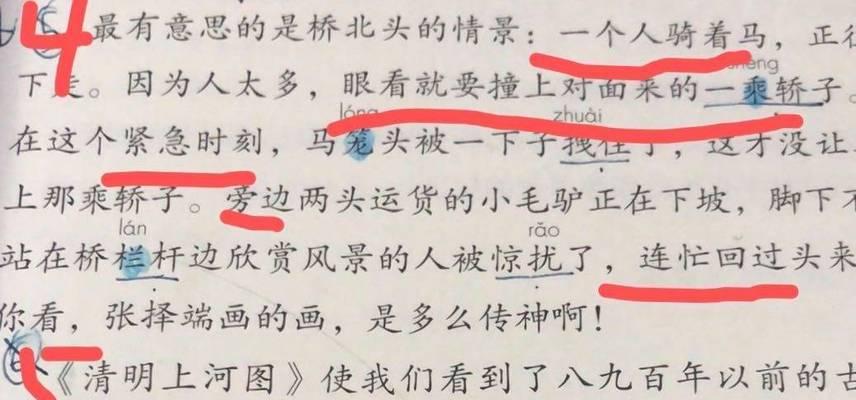 4 最有意思的是桥北头的情景：一个人骑着马，正往
shèng
下走。因为人太多，眼看就要撞上对面来的一乘轿子。
lóng zhuài
在这个紧急时刻，马笼头被一下子拽住了，这才没让
上那乘轿子。旁边两头运货的小毛驴正在下坡，脚下不
lán rǎo
站在桥栏杆边欣赏风景的人被惊扰了，连忙回过头来
你看，张择端画的画，是多么传神啊！
5 《清明上河图》使我们看到了八九百年以前的古